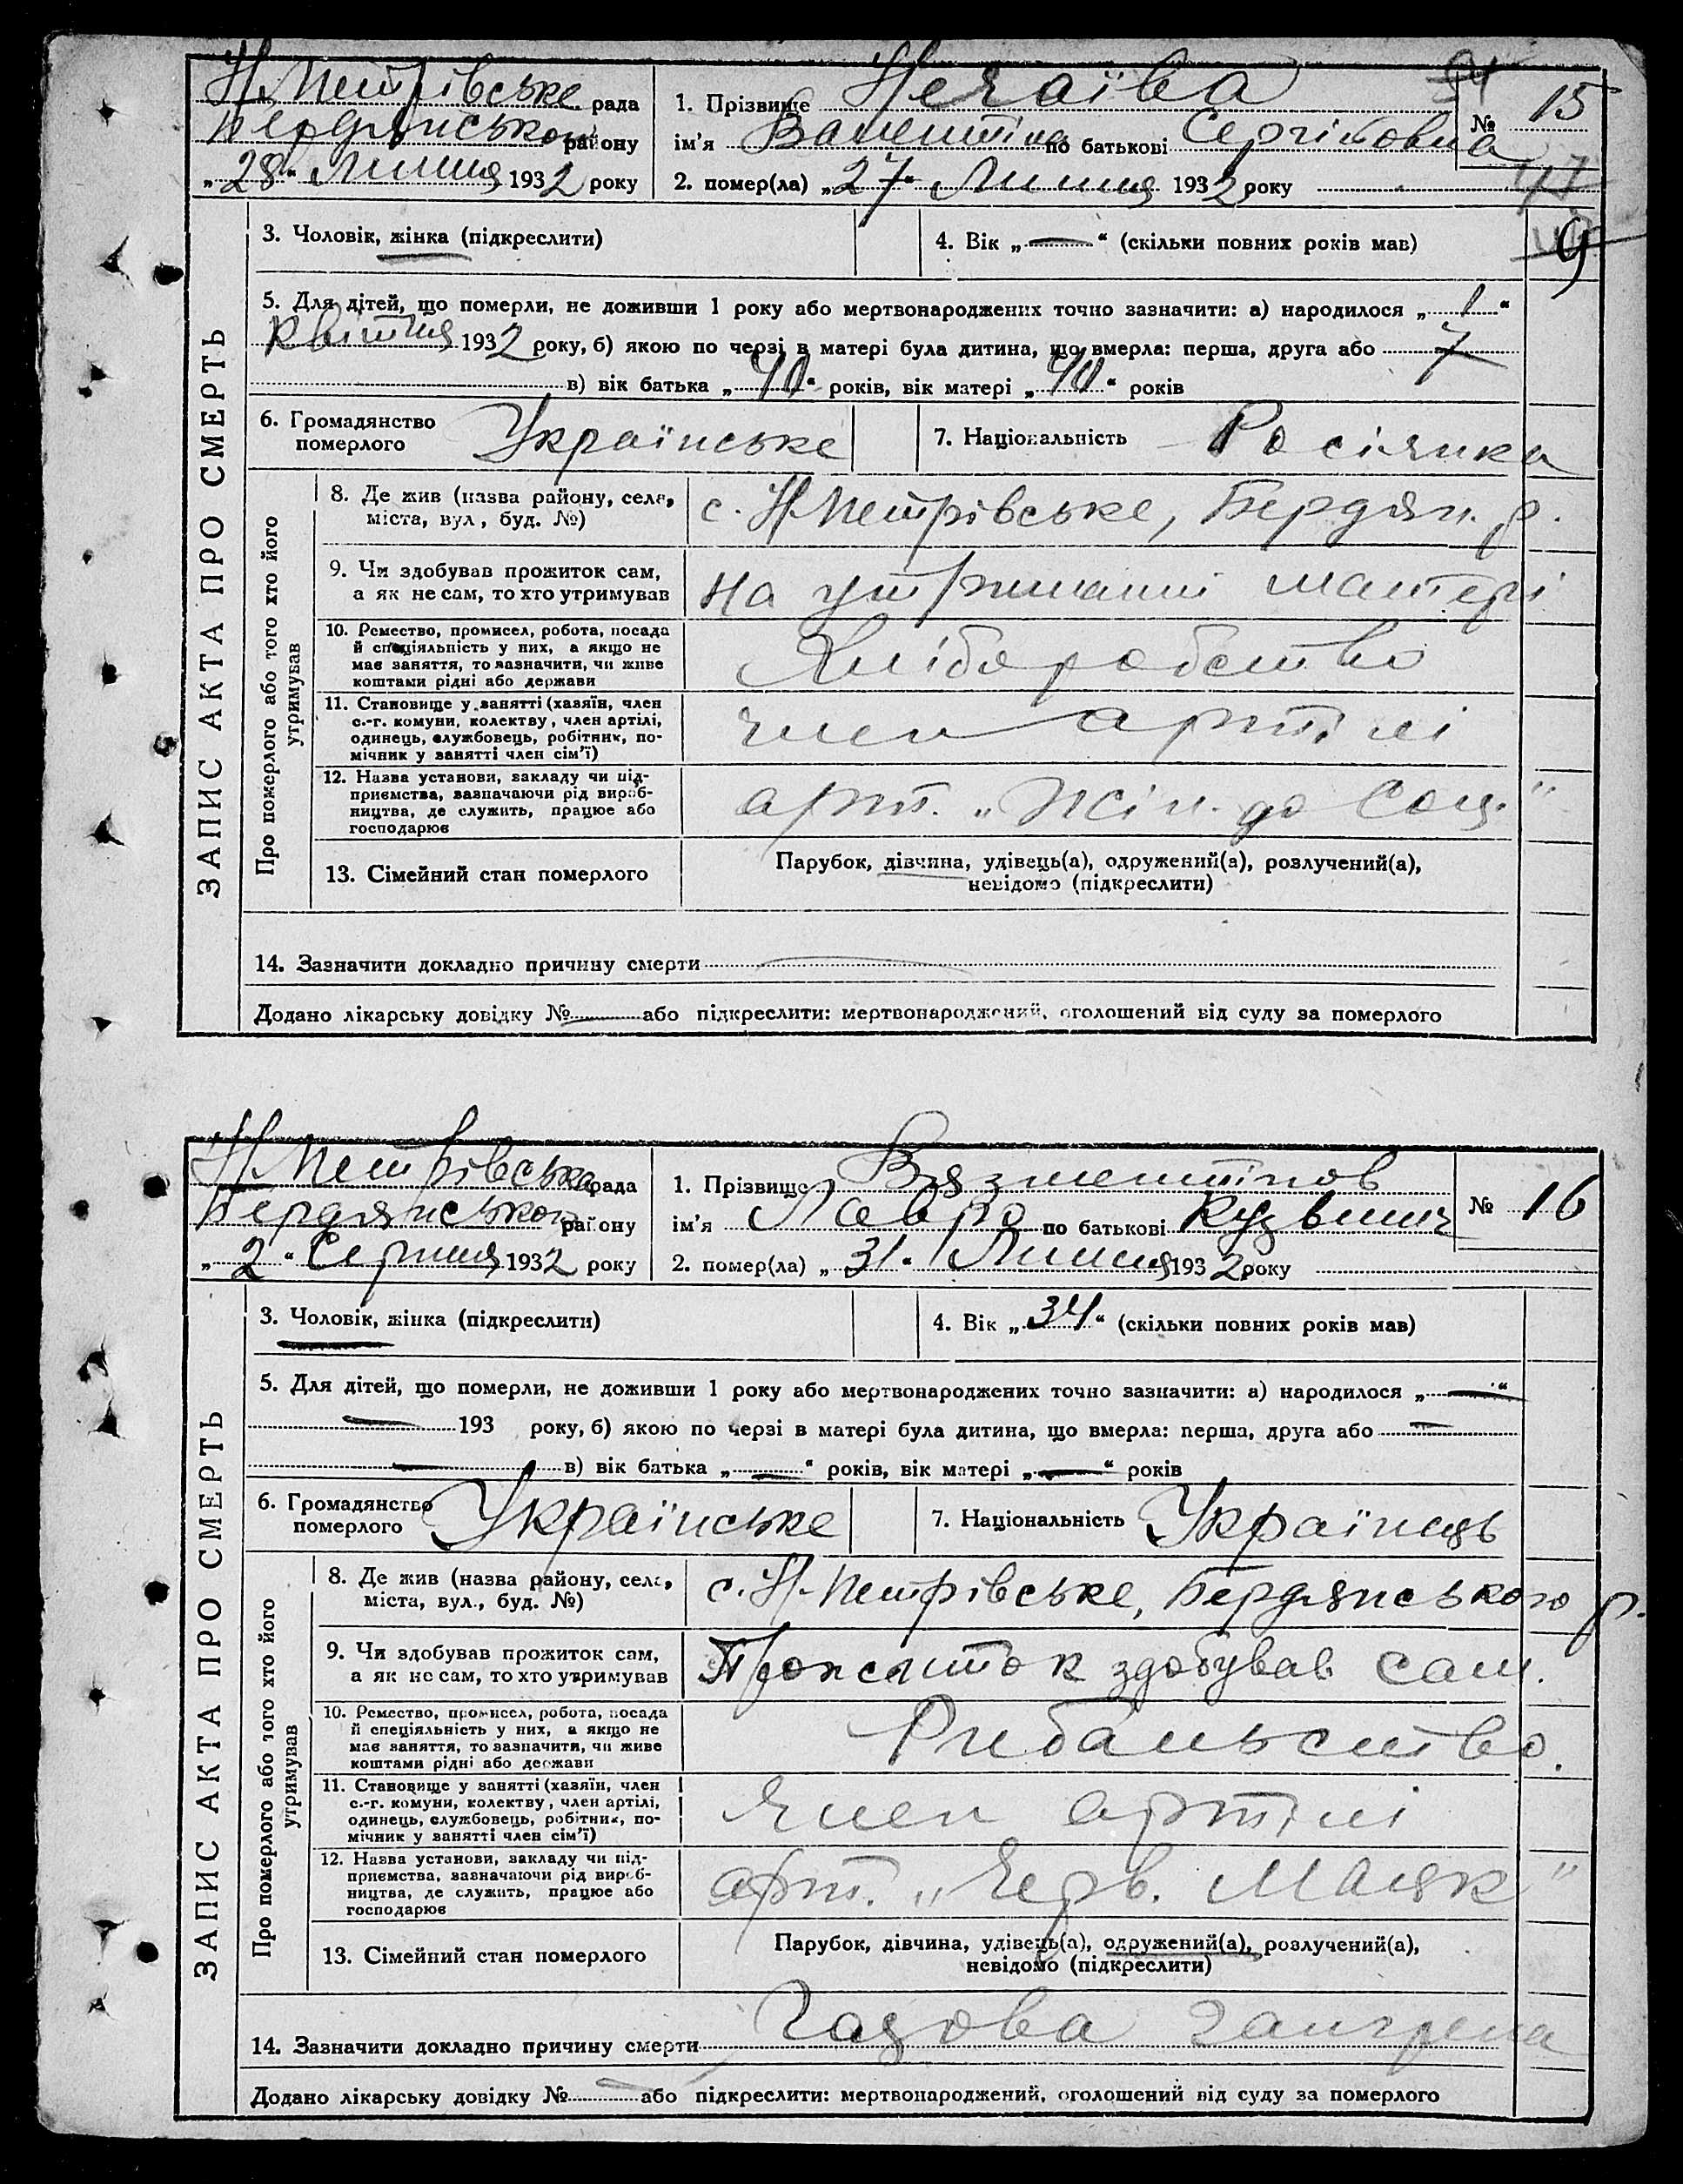 Н.Петрівське рада
Бердянського району
„28“ Липня 1932 року
1. Прізвище Нечаїва
ім'я Валентіна по батькові Сергіїовна
2. помер(ла) „27“ Липня 1932 року
№ 15
9
ЗАПИС АКТА ПРО СМЕРТЬ
3. Чоловік, жінка (підкреслити)
4. Вік „—“ (скільки повних років мав)
5. Для дітей, що померли, не доживши 1 року або мертвонароджених точно зазначити: а) народилося „1“
Квітня 1932 року, б) якою по черзі в матері була дитина, що вмерла: перша, друга або 7
в) вік батька „40“ років, вік матері „40“ років
6. Громадянство померлого Українське
7. Національність Росіянка
Про померлого або того хто його утримував
8. Де жив (назва району, села, міста, вул., буд. №) с. Н.Петрівське, Бердян. р.
9. Чим здобував прожиток сам, а як не сам, то хто утримував На утриманні матері
10. Ремество, промисел, робота, посада й спеціяльність у них, а якщо не має заняття, то зазначити, чи живе коштами рідні або держави Хліборобство
11. Становище у занятті (хазяїн, член с.-г. комуни, колективу, член артілі, одинець, службовець, робітник, помічник у занятті член сім'ї) член артілі
12. Назва установи, закладу чи підприємства, зазначаючи рід виробництва, де служить, працює або господарює арт. „Жін. до Соц.“
13. Сімейний стан померлого
Парубок, дівчина, удівець(а), одружений(а), розлучений(а),
невідомо (підкреслити)
14. Зазначити докладно причину смерти
Додано лікарську довідку № або підкреслити: мертвонароджений, оголошений від суду за померлого
Н.Петрівська рада
Бердянського району
„2“ Серпня 1932 року
1. Прізвище Вязметінов
ім'я Лавро по батькові Кузьмич
2. помер(ла) „31“ Липня 1932 року
№ 16
ЗАПИС АКТА ПРО СМЕРТЬ
3. Чоловік, жінка (підкреслити)
4. Вік „34“ (скільки повних років мав)
5. Для дітей, що померли, не доживши 1 року або мертвонароджених точно зазначити: а) народилося „—“
— 193 року, б) якою по черзі в матері була дитина, що вмерла: перша, друга або —
— в) вік батька „—“ років, вік матері „—“ років
6. Громадянство померлого Українське
7. Національність Українець
Про померлого або того хто його утримував
8. Де жив (назва району, села, міста, вул., буд. №) с. Н.Петрівське, Бердянського р.
9. Чим здобував прожиток сам, а як не сам, то хто утримував Прожиток здобував сам.
10. Ремество, промисел, робота, посада й спеціяльність у них, а якщо не має заняття, то зазначити, чи живе коштами рідні або держави Рибальство.
11. Становище у занятті (хазяїн, член с.-г. комуни, колективу, член артілі, одинець, службовець, робітник, помічник у занятті член сім'ї) Член артілі
12. Назва установи, закладу чи підприємства, зазначаючи рід виробництва, де служить, працює або господарює арт. „Черв. Маяк“
13. Сімейний стан померлого
Парубок, дівчина, удівець(а), одружений(а), розлучений(а),
невідомо (підкреслити)
14. Зазначити докладно причину смерти Газова гангрена
Додано лікарську довідку № або підкреслити: мертвонароджений, оголошений від суду за померлого